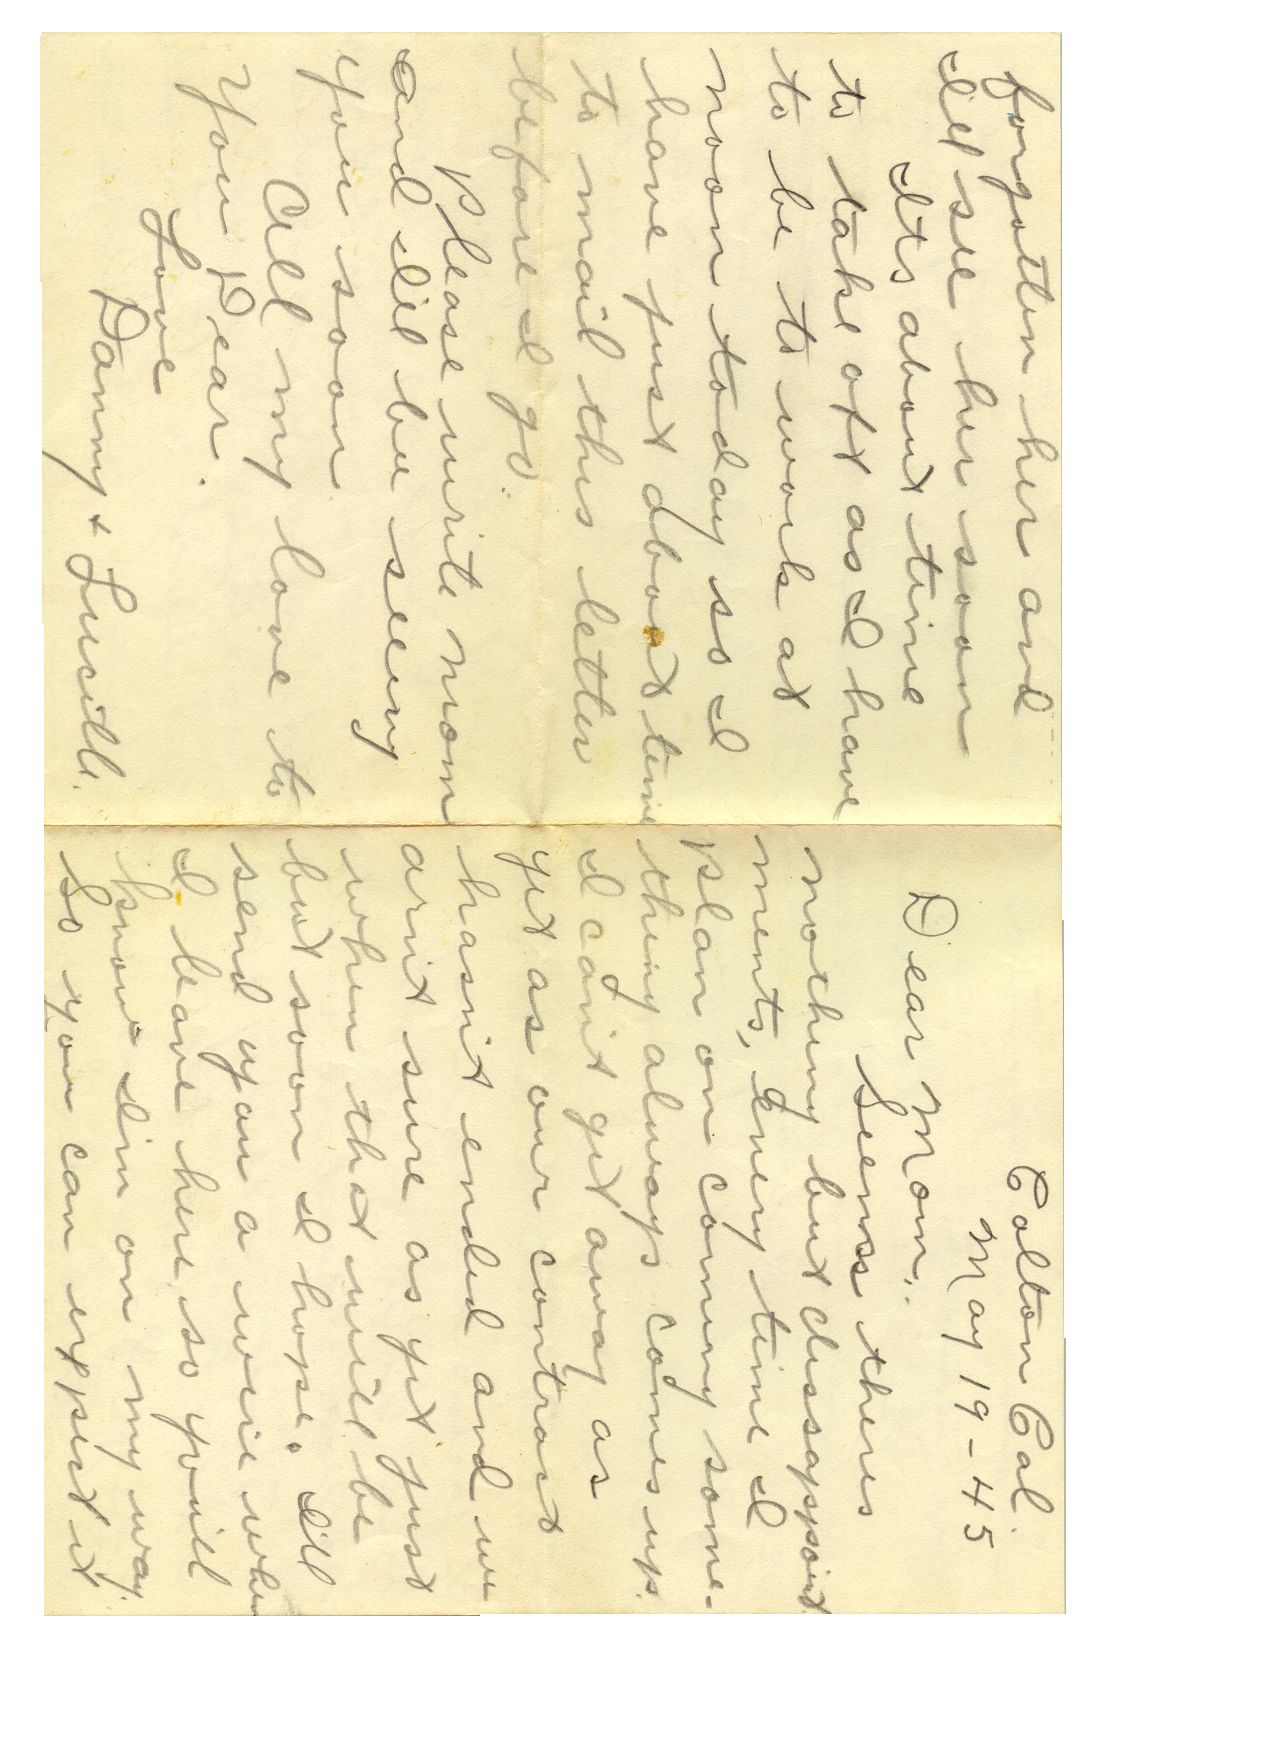 Colton Cal.
May 19-45
Dear Mom:
Seems theres
nothing but dissappoint
ments, Every time I
plan on coming some-
thing always comes up.
I can't get away as
yet as our contract
hasn't ended and we
arn't sure as yet just
when that will be
but soon I hope. I'll
send you a wire when
I leave here so you'll
know I'm on my way.
So you can expect it
forgotten her and
I'll see her soon
Its about time
to take off as I have
to be to work at
noon today so I
have just about time
to mail this letter
before I go.
Please write mom
and I'll be seeing
you soon
All my love to
you Dear.
Love
Danny + Lucille.